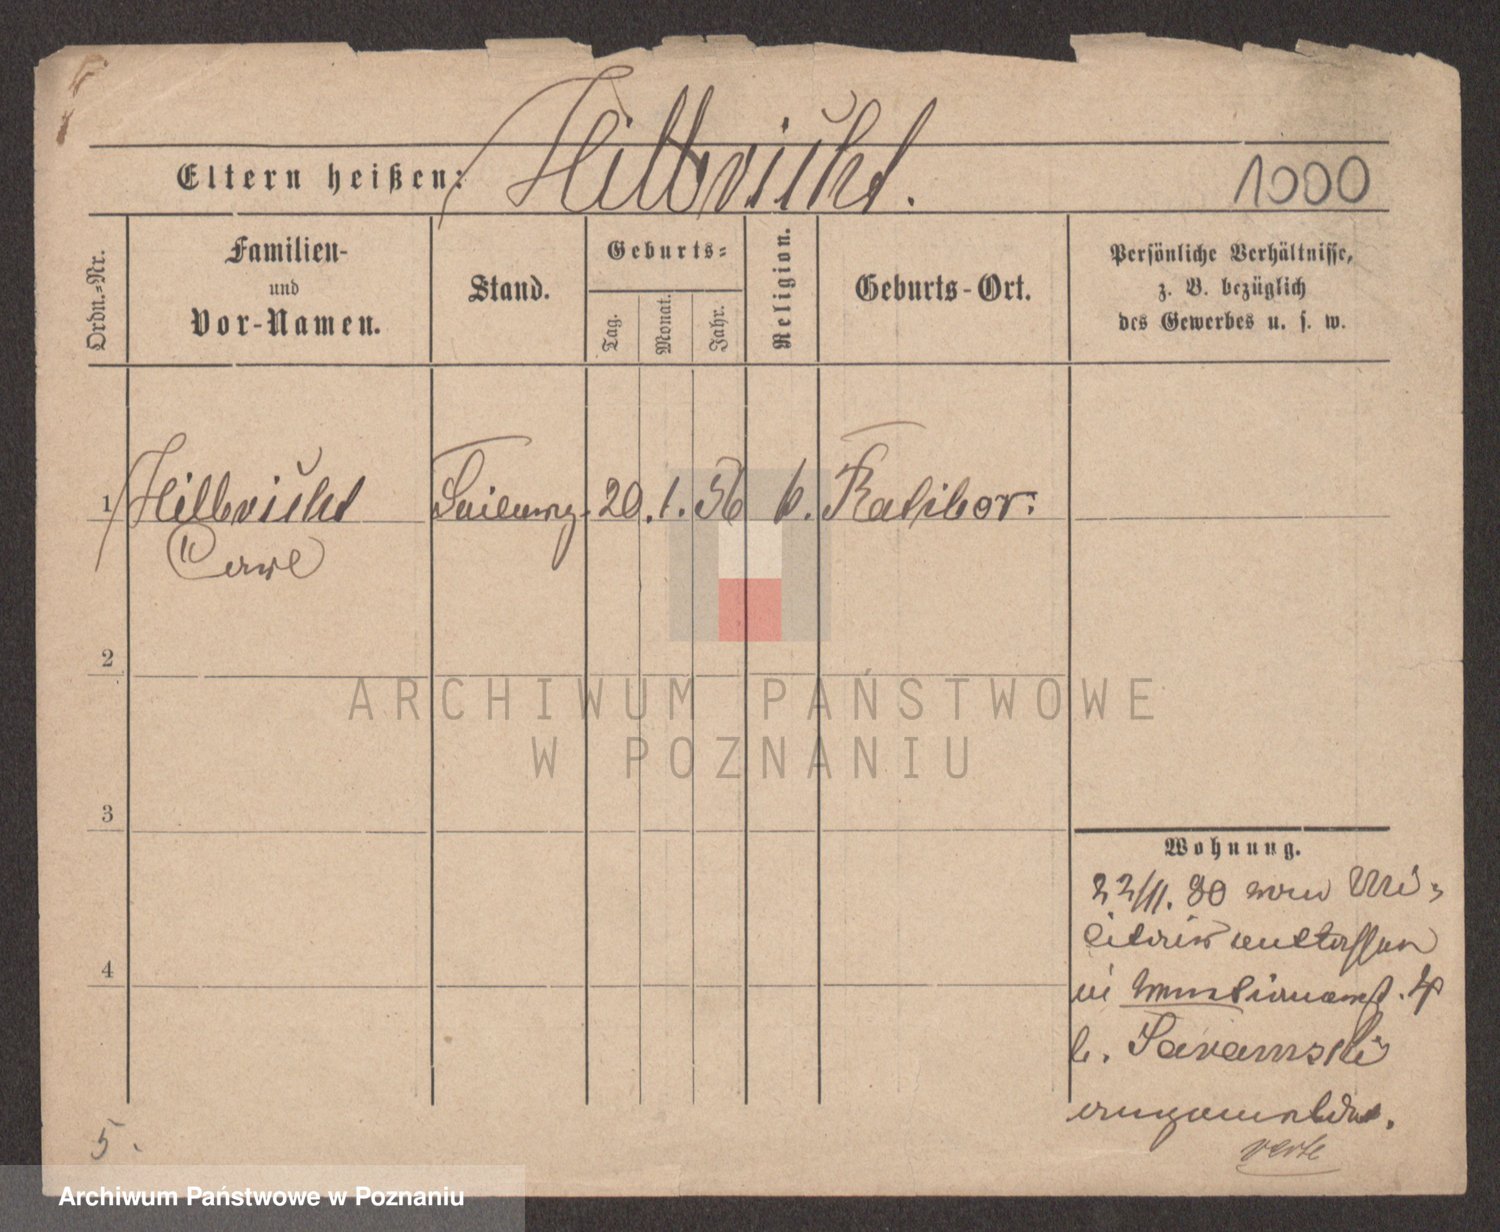 Eltern heißen: Hilbricht.
1000
Ordn.-Nr.
Familien-
und
Vor-Namen.
Stand.
Geburts-
Tag.
Monat.
Jahr.
Religion.
Geburts-Ort.
Persönliche Verhältnisse,
z. B. bezüglich
des Gewerbes u. s. w.
1 Hilbricht 20. 1. 56 k. Ratibor.
2
ARCHIWUM PAŃSTWOWE
W POZNANIU
3
Wohnung.
22/11. 80 vom Mi-
litair entlassen
4
angemeldet.
verte
5.
Archiwum Państwowe w Poznaniu